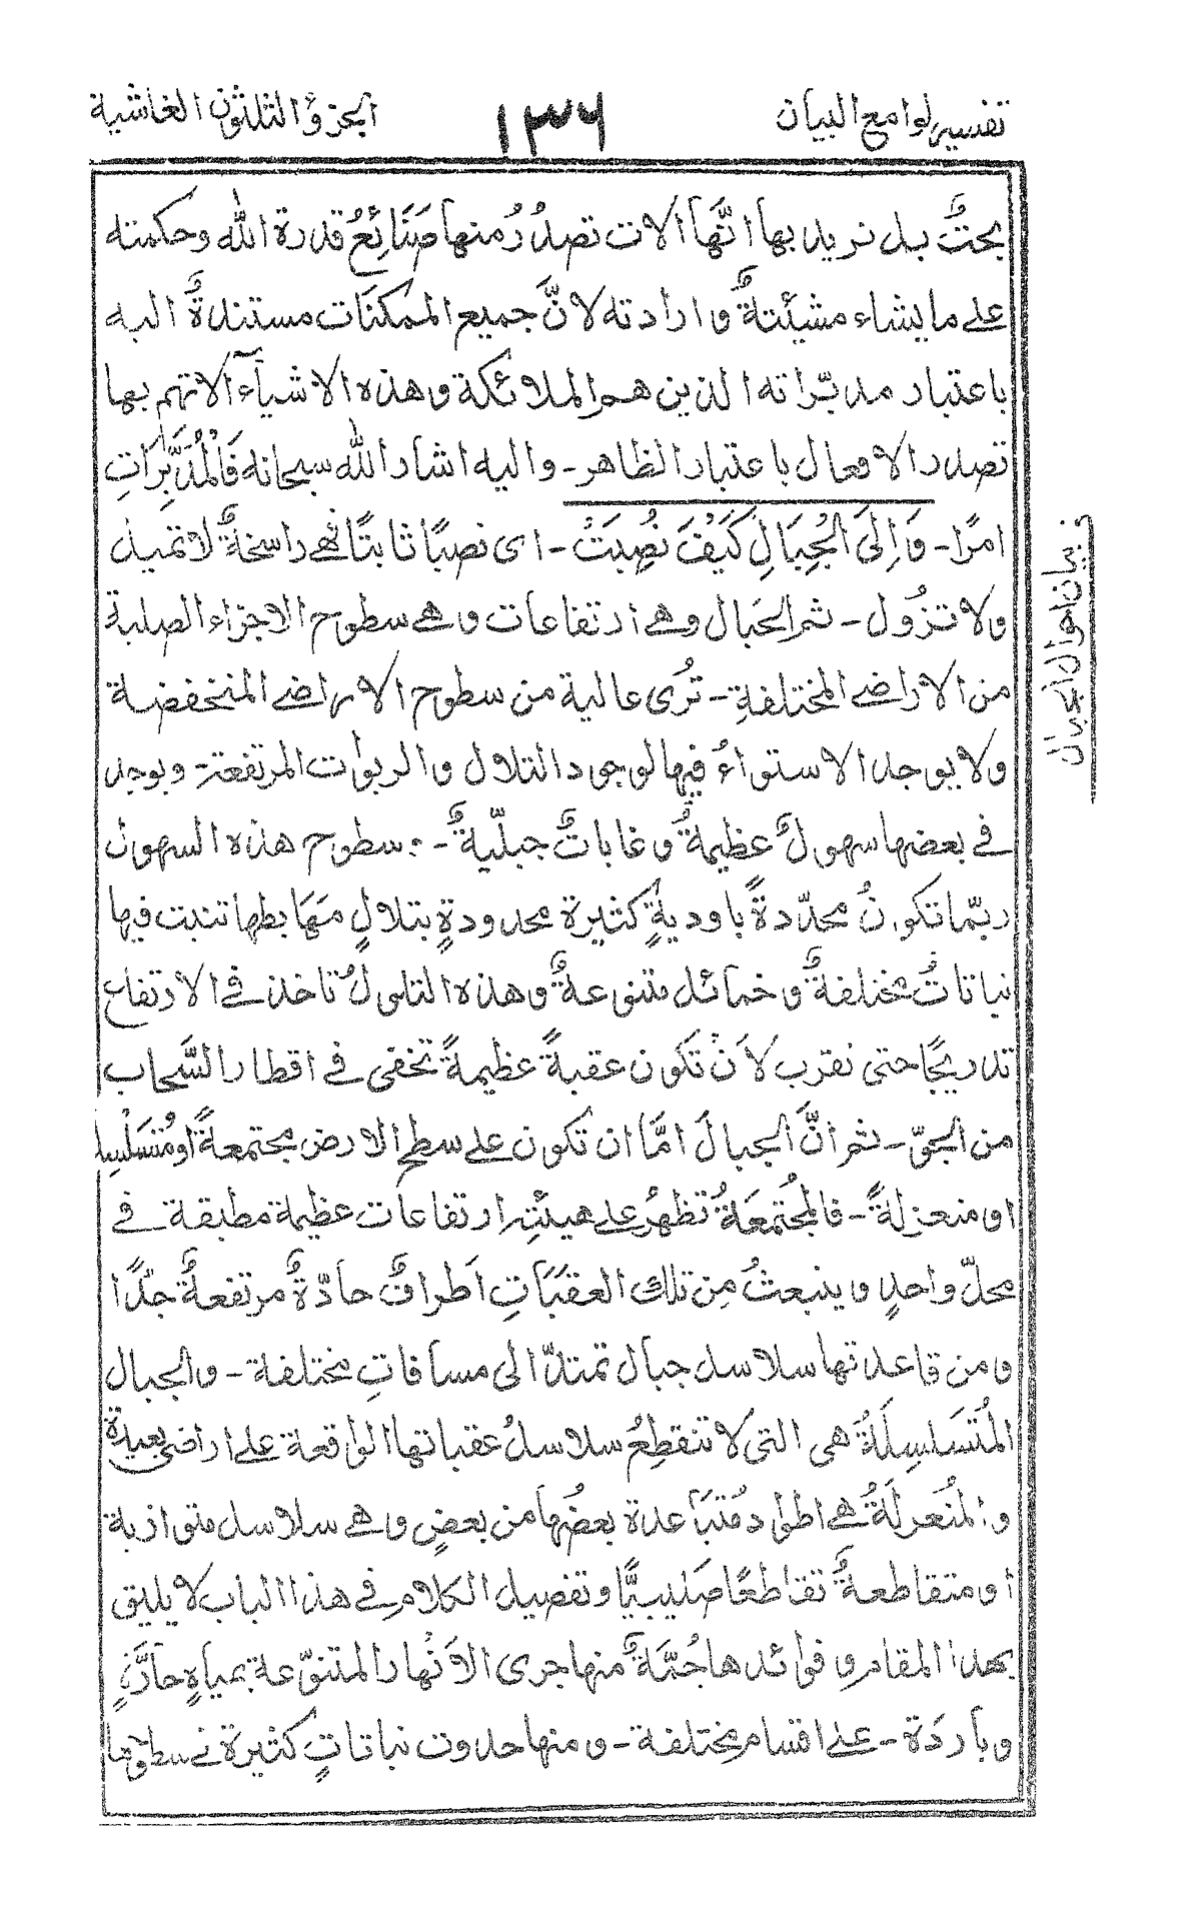 تفسير لوامع البيان ١٣٦ الجزؤ الثلثون الغاشية
بحتٌ بل نريد بها انَّها آلات تصدُرُ منها صَنَائِعُ قدرة الله وحكمته
على مايشاء مشيئتهٗ وارادته لانَّ جميع الممكنَات مستندةٌ اليه
باعتبار مدبّراته الذين هم الملائكة وهذه الاشيآء الاتهم بها
تصدر الافعال باعتبار الظاهر - واليه اشار الله سبحانه فَالْمُدَبِّرَاتِ
امرًا - وَاِلَى الْجِبَالِ كَيْفَ نُصِبَتْ - اى نصبًا ثابتًا فهى راسخةٌ لاتميل
ولاتزُول - ثم الجَبال وهى ارتفاعات وهى سطوح الاجزاء الصلبة
من الاراضى المختلفةِ - تُرى عالية من سطوح الاراضى المنخفضة
ولايوجد الاستواءُ فيها لوجود التلال والربوات المرتفعة - ويوجد
فى بعضها سهولٌ عظيمةٌ وغاباتٌ جبليّةٌ - سطوح هذه السهول
ربّما تكون محدّدةً باوديةٍ كثيرة محدودةٍ بتلالٍ مَهَابطها تنبت فيها
نباتاتُ مختلفةٌ وخمائل متنوعةٌ وهذه التلولُ تاخذ فى الارتفاع
تدريجًا حتى نقرب لاَنْ تكون عقبةً عظيمةً تخفى فى اقطار السَّحاب
من الجوّ - ثم انَّ الجبالَ امَّا ان تكون على سطح الارض مجتمعةً او مُتسَلْسِلة
او منعزلةً - فالمُجتمعَةُ تظهرُ على هيئة ارتفاعات عظيمة مطبقة فى
محلّ واحدٍ وينبعثُ مِن تلك العقبَاتِ اَطرافٌ حادّةٌ مرتفعةٌ جدًّا
ومن قاعدتها سلاسل جبال تمتدّ الى مسافاتٍ مختلفة - والجبال
المُتسَلسِلَةُ هى التى لاتنقطِعُ سلاسلُ عقباتها الواقعة على اراضى بعيدة
والمُنعزلَةُ هى اطواد مُتبَاعدة بعضُها من بعضٍ وهى سلاسل متوازية
او متقاطعةٌ تقاطعًا صَليبيًّا وتفصيل الكلام فى هذا الباب لايليق
بهذا المقام وفوائدها جُمَّةٌ منها جرى الاَنْهار المتنوّعة بمياهٍ حارّةٍ
وبارَدَة - على اقسام مختلفة - ومنها حدوث نباتاتٍ كثيرة فى سطوحها
فى بيان احوال الجبال